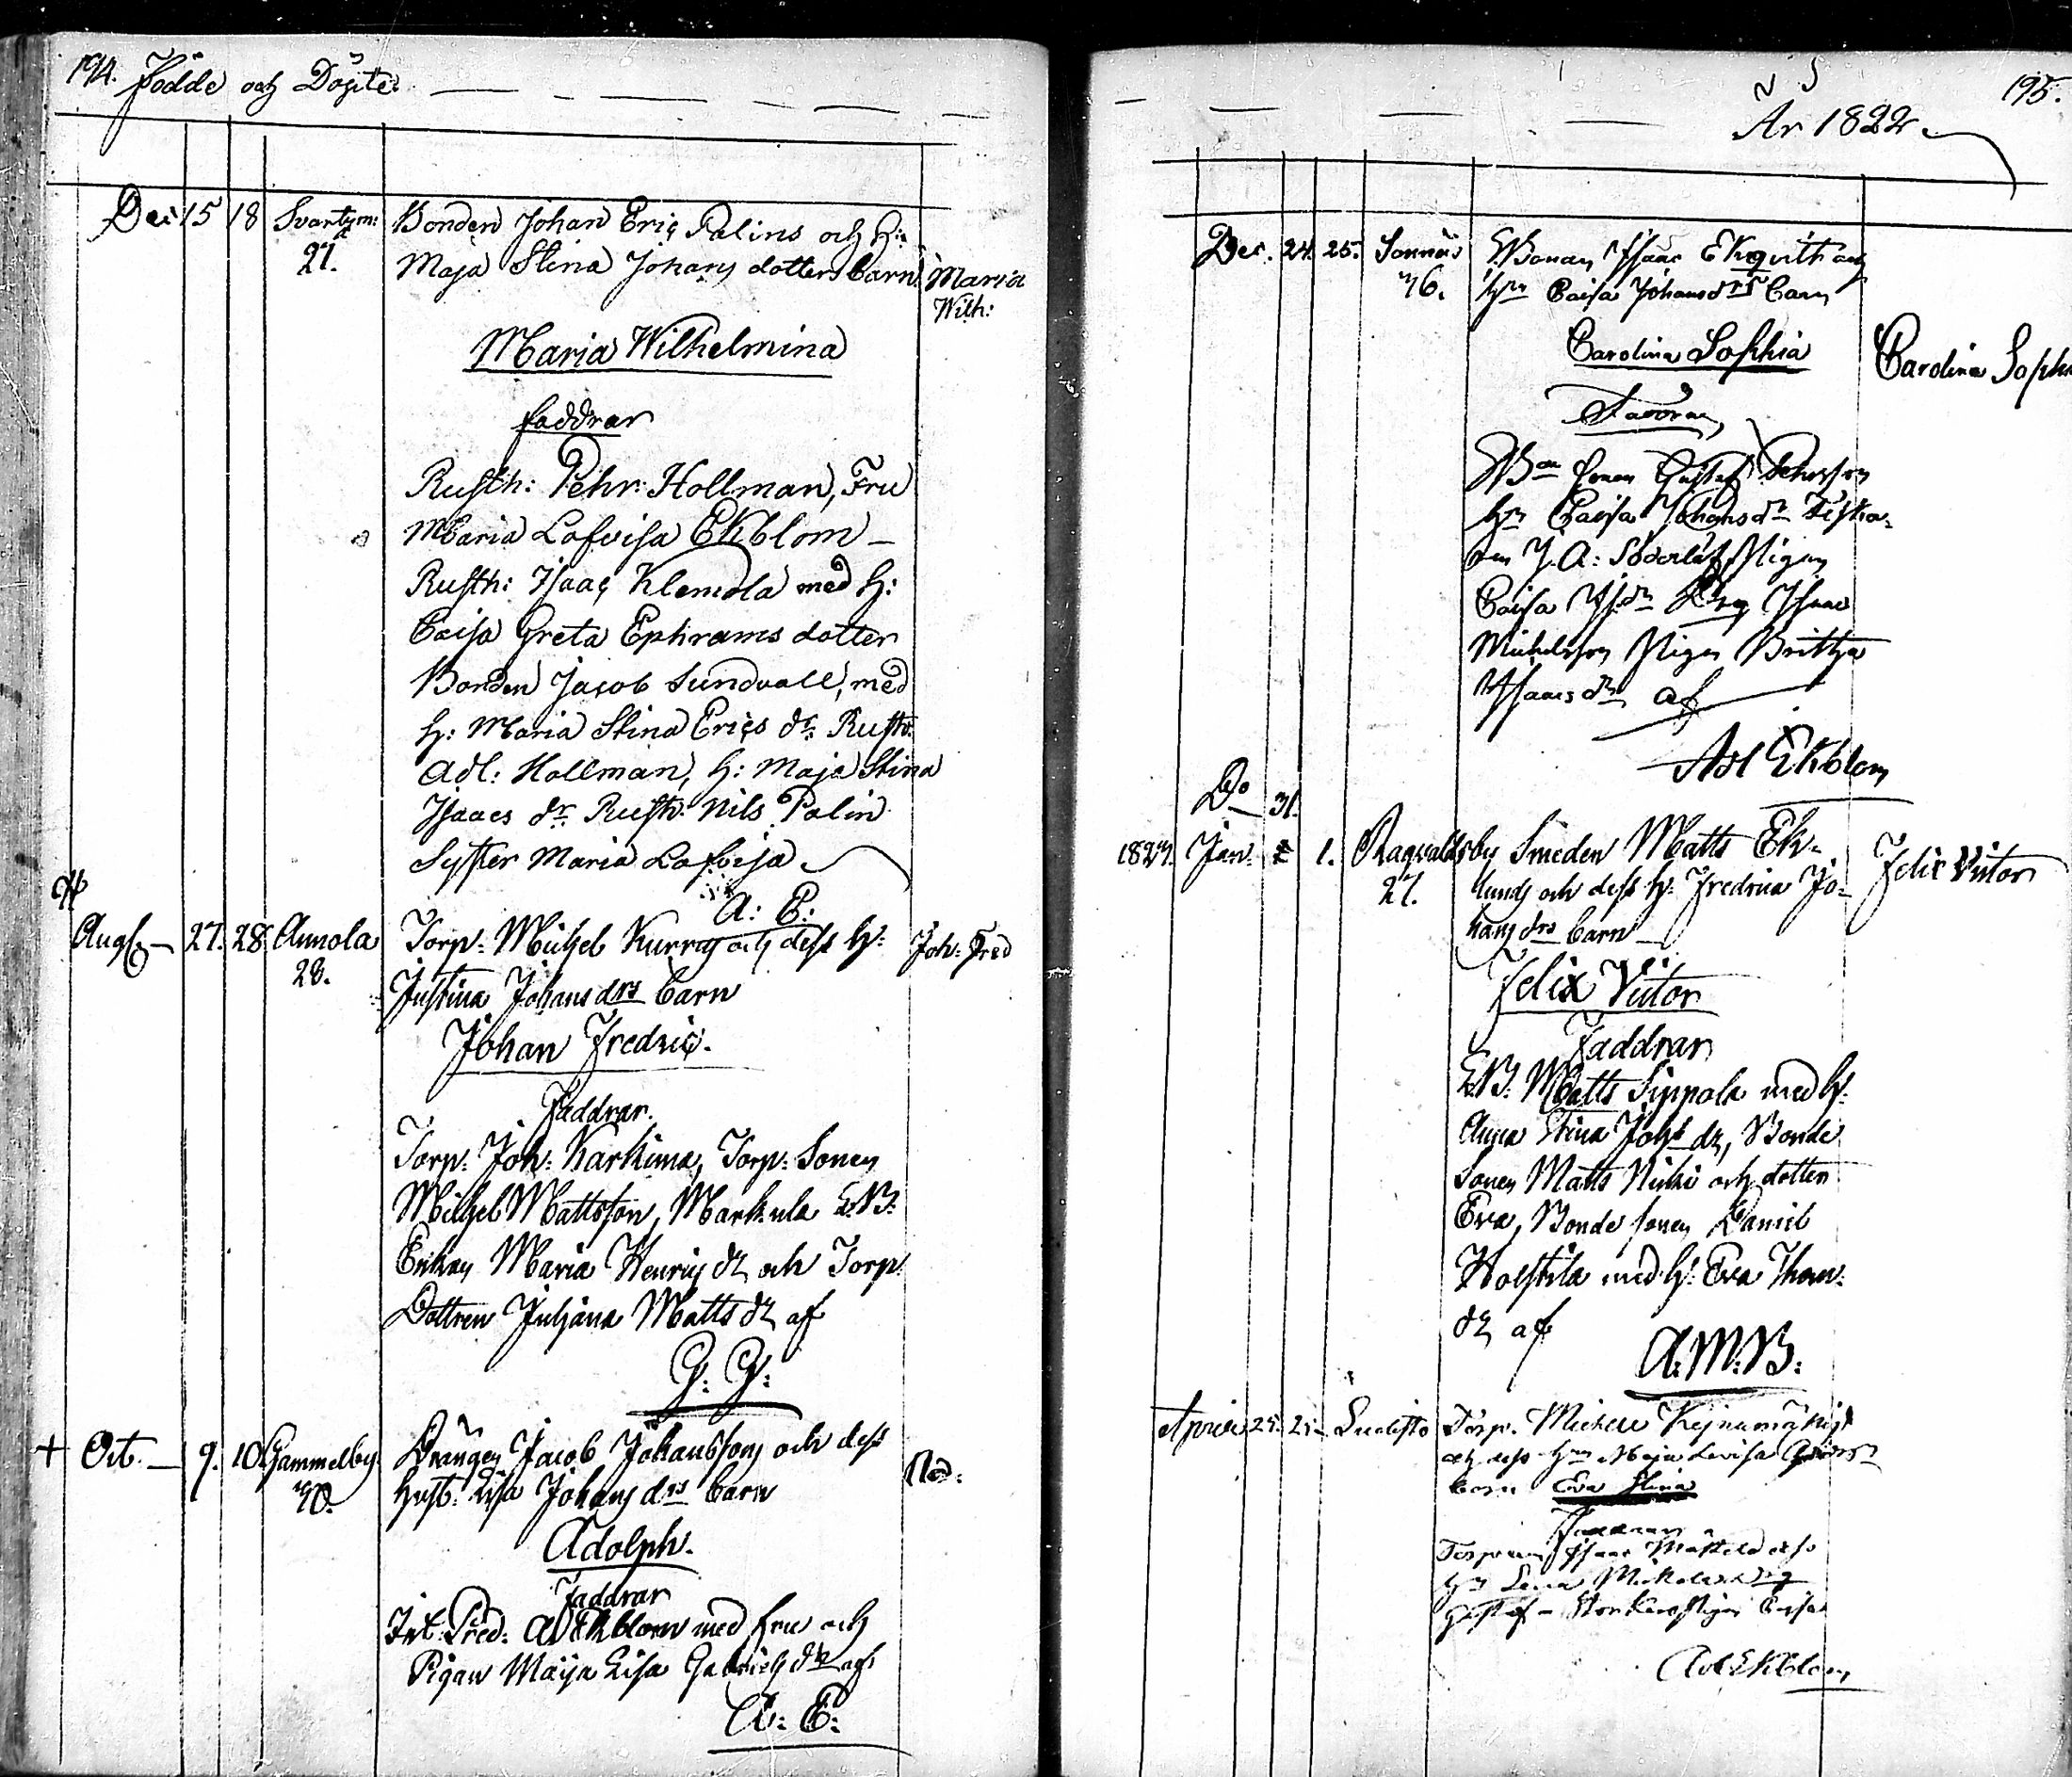 194. Födde och Döpte
Dec 15 18 Svartsm:
27.
Bonden Johan Eric Palins och h:
Maja Stina Johans dotters barn
Maria
Wilh:
Maria Wilhelmina
faddrar
Rusth: Pehr Hollman, Fru
Maria Lofvisa Ekblom
Rusth: Isaac Klemola med h:
Caisa Greta Ephrams dotter
Bonden Jacob Sundvall, med
h: Maria Stina Erics dr. Rusth:
Adl: Hollman, h: Maja Stina
Isaacs dr. Rusth: Nils Palin
Syster Maria Lofvisa
A: E:
Aug 27. 28. Annola
28.
Torp: Michel Kurra och dess h:
Justina Johans drs barn
Joh: Fred
Johan Fredric.
Faddrar.
Torp: Joh: Karkima, Torp: Sonen
Michel Mattsson, Markula
Enkan Maria Henrics dr och Torp:
Dottren Juljana Matts dr af
G: G:
+ Oct. 9. 10. Gammelby
40.
Drängen Jacob Johanssons och dess
hust: Lisa Johans drs barn
Adolph.
Faddrar
Pred: A Ekblom med fru och
Pigan Maija Lisa Gabriels dr af
A: E:
195.
År 1822
Dec. 24. 25. Sonnäs
36.
Isaac Ekqvist och
hn Caisa Johansdrs barn
Carolina Sophia
Carolina Soph
Faddrar
Gustaf Pehrsson
hn Caisa Johansdr
J. A: Söderl Pigan
Caisa Isdr Isaac
Michelsson Pigan Brittha
Isaacs dr af
Adl Ekblom
Do 31.
1823. Jan. 1. Ragvaldsby
27.
Smeden Matts Ek-
lunds och dess h: Fredrica Jo-
hans drs barn
Felix Victor
Felix Victor
Faddrar
Matts Sippola med h:
Anna Stina Johs dr, Bonde
Sonen Matts Kicki och dotter
Eva, Bonde sonen Daniel
Hostila med h: Eva Thom:
dr af
A: M: B:
April 25. 25.
Torp. Michell
och dess hn Maja Lovisa
barn Eva Stina
Faddrar
Torparen Isaac
hn Lena
Gustaf Pigan Caisa
Adl Ekblom